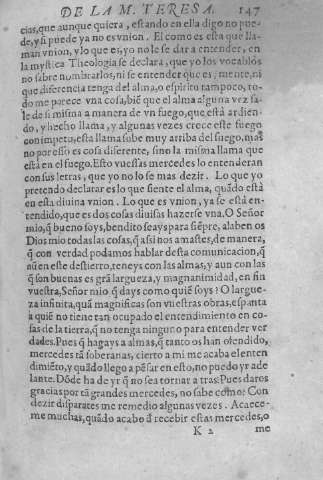 DE LA M. TERESA. 147
cias, que aunque quiera, estando en ella digo no pue-
de, y si puede ya no es vnion. El como es esta que lla-
man vnion, y lo que es, yo no le se dar a entender, en
la mystica Theologia se declara, que yo los vocablos
no sabre nombrarlos, ni se entender que es, mente, ni
que diferencia tenga del alma, o espiritu tampoco, to-
do me parece vna cosa, biẽ que el alma alguna vez sa-
le de si misma a manera de vn fuego, que està ardien-
do, y hecho llama, y algunas vezes crece este fuego
con impetu, esta llama sube muy arriba del fuego, mas
no por esso es cosa diferente, sino la misma llama que
està en el fuego. Esto vuessas mercedes lo entenderan
con sus letras, que yo no lo se mas dezir. Lo que yo
pretendo declarar es lo que siente el alma, quãdo està
en esta diuina vnion. Lo que es vnion, ya se està en-
tendido, que es dos cosas diuisas hazerse vna. O Señor
mio, q̃ bueno soys, bendito seays para siẽpre, alaben os
Dios mio todas las cosas, q̃ assi nos amastes, de manera,
q̃ con verdad podamos hablar desta comunicacion, q̃
aũ en este destierro, teneys con las almas, y aun con las
q̃ son buenas es grã largueza, y magnanimidad, en fin
vuestra, Señor mio, q̃ days como quiẽ soys? O largue-
za infinita, quã magnificas son vuestras obras, espanta
a quiẽ no tiene tan ocupado el entendimiento en co-
sas de la tierra, q̃ no tenga ninguno para entender ver
dades. Pues q̃ hagays a almas, q̃ tanto os han ofendido,
mercedes tã soberanas, cierto a mi me acaba el enten
dimiẽto, y quãdo llego a pẽsar en esto, no puedo yr ade
lante. Dõde ha de yr q̃ no sea tornar a tras: Pues daros
gracias por tã grandes mercedes, no sabe como: Con
dezir disparates me remedio algunas vezes. Acaece-
me muchas, quãdo acabo ã recebir estas mercedes, o
K 2 me